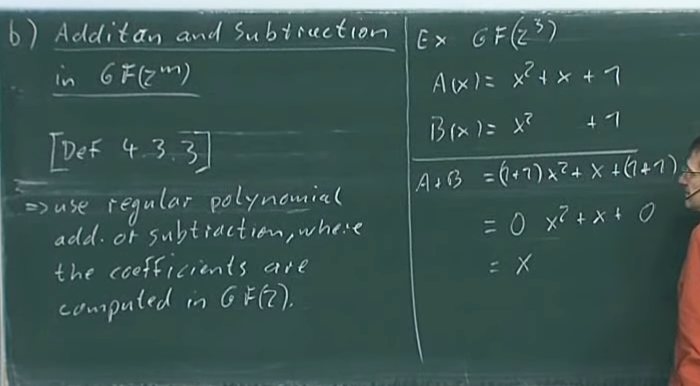 b) Additon and Subtraction
in GF(2^m)
[Def 4.3.3]
=> use regular polynomial
add. or subtraction, where
the coefficients are
computed in GF(2).
Ex GF(2^3)
A(x) = x^2 + x + 1
B(x) = x^2 + 1
A+B = (1+1)x^2 + x + (1+1)
= 0 x^2 + x + 0
= x